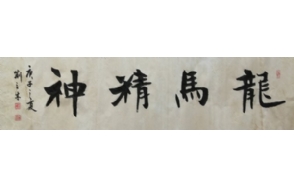 龍馬精神
庚子之夏